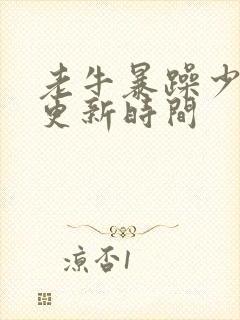 老牛暴躁少
更新時間
凉否1